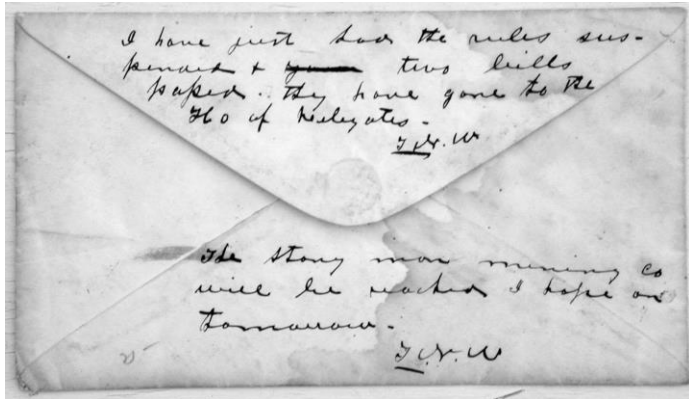 I have just had the rules sus-
pended & two bills
passed. They have gone to the
Ho of Delegates -
W
The Stony mining Co
will be reached I hope on
tomorrow -
W